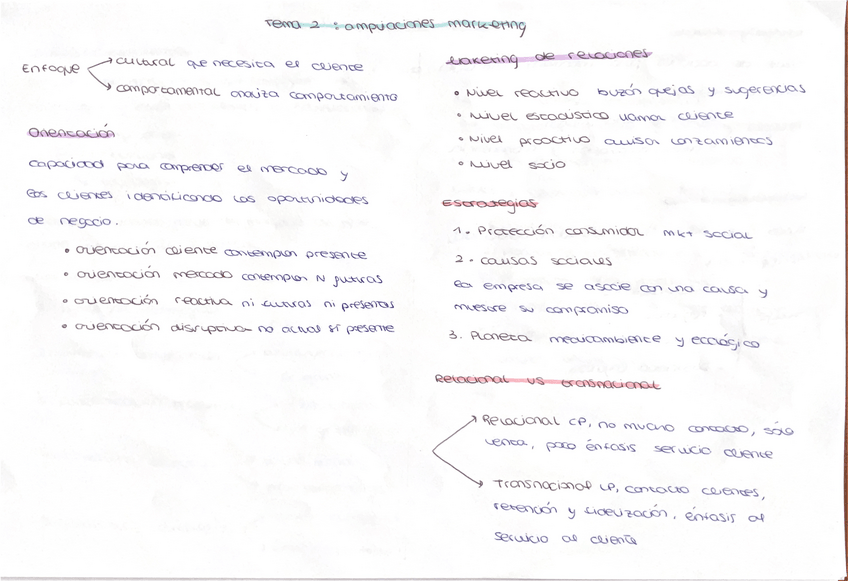 Tema 2 : ampliaciones marketing
Enfoque
cultural que necesita el cliente
comportamental analiza comportamiento
Orientación
capacidad para comprender el mercado y
los clientes identificando las oportunidades
de negocio.
• orientación cliente contemplan presente
• orientación mercado contemplan N futuras
• orientación reactiva ni futuras ni presentes
• orientación disruptiva no actual sí presente
Marketing de relaciones
• Nivel reactivo buzón quejas y sugerencias
• Nivel estadístico llamar cliente
• Nivel proactivo avisar lanzamientos
• Nivel socio
Estrategias
1. Protección consumidor mkt social
2. causas sociales
la empresa se asocie con una causa y
muestre su compromiso
3. Planeta medioambiente y ecológico
Relacional vs transnacional
Relacional CP, no mucho contacto, sólo
venta, poco énfasis servicio cliente
Transnacional LP, contacto clientes,
retención y fidelización, énfasis al
servicio al cliente